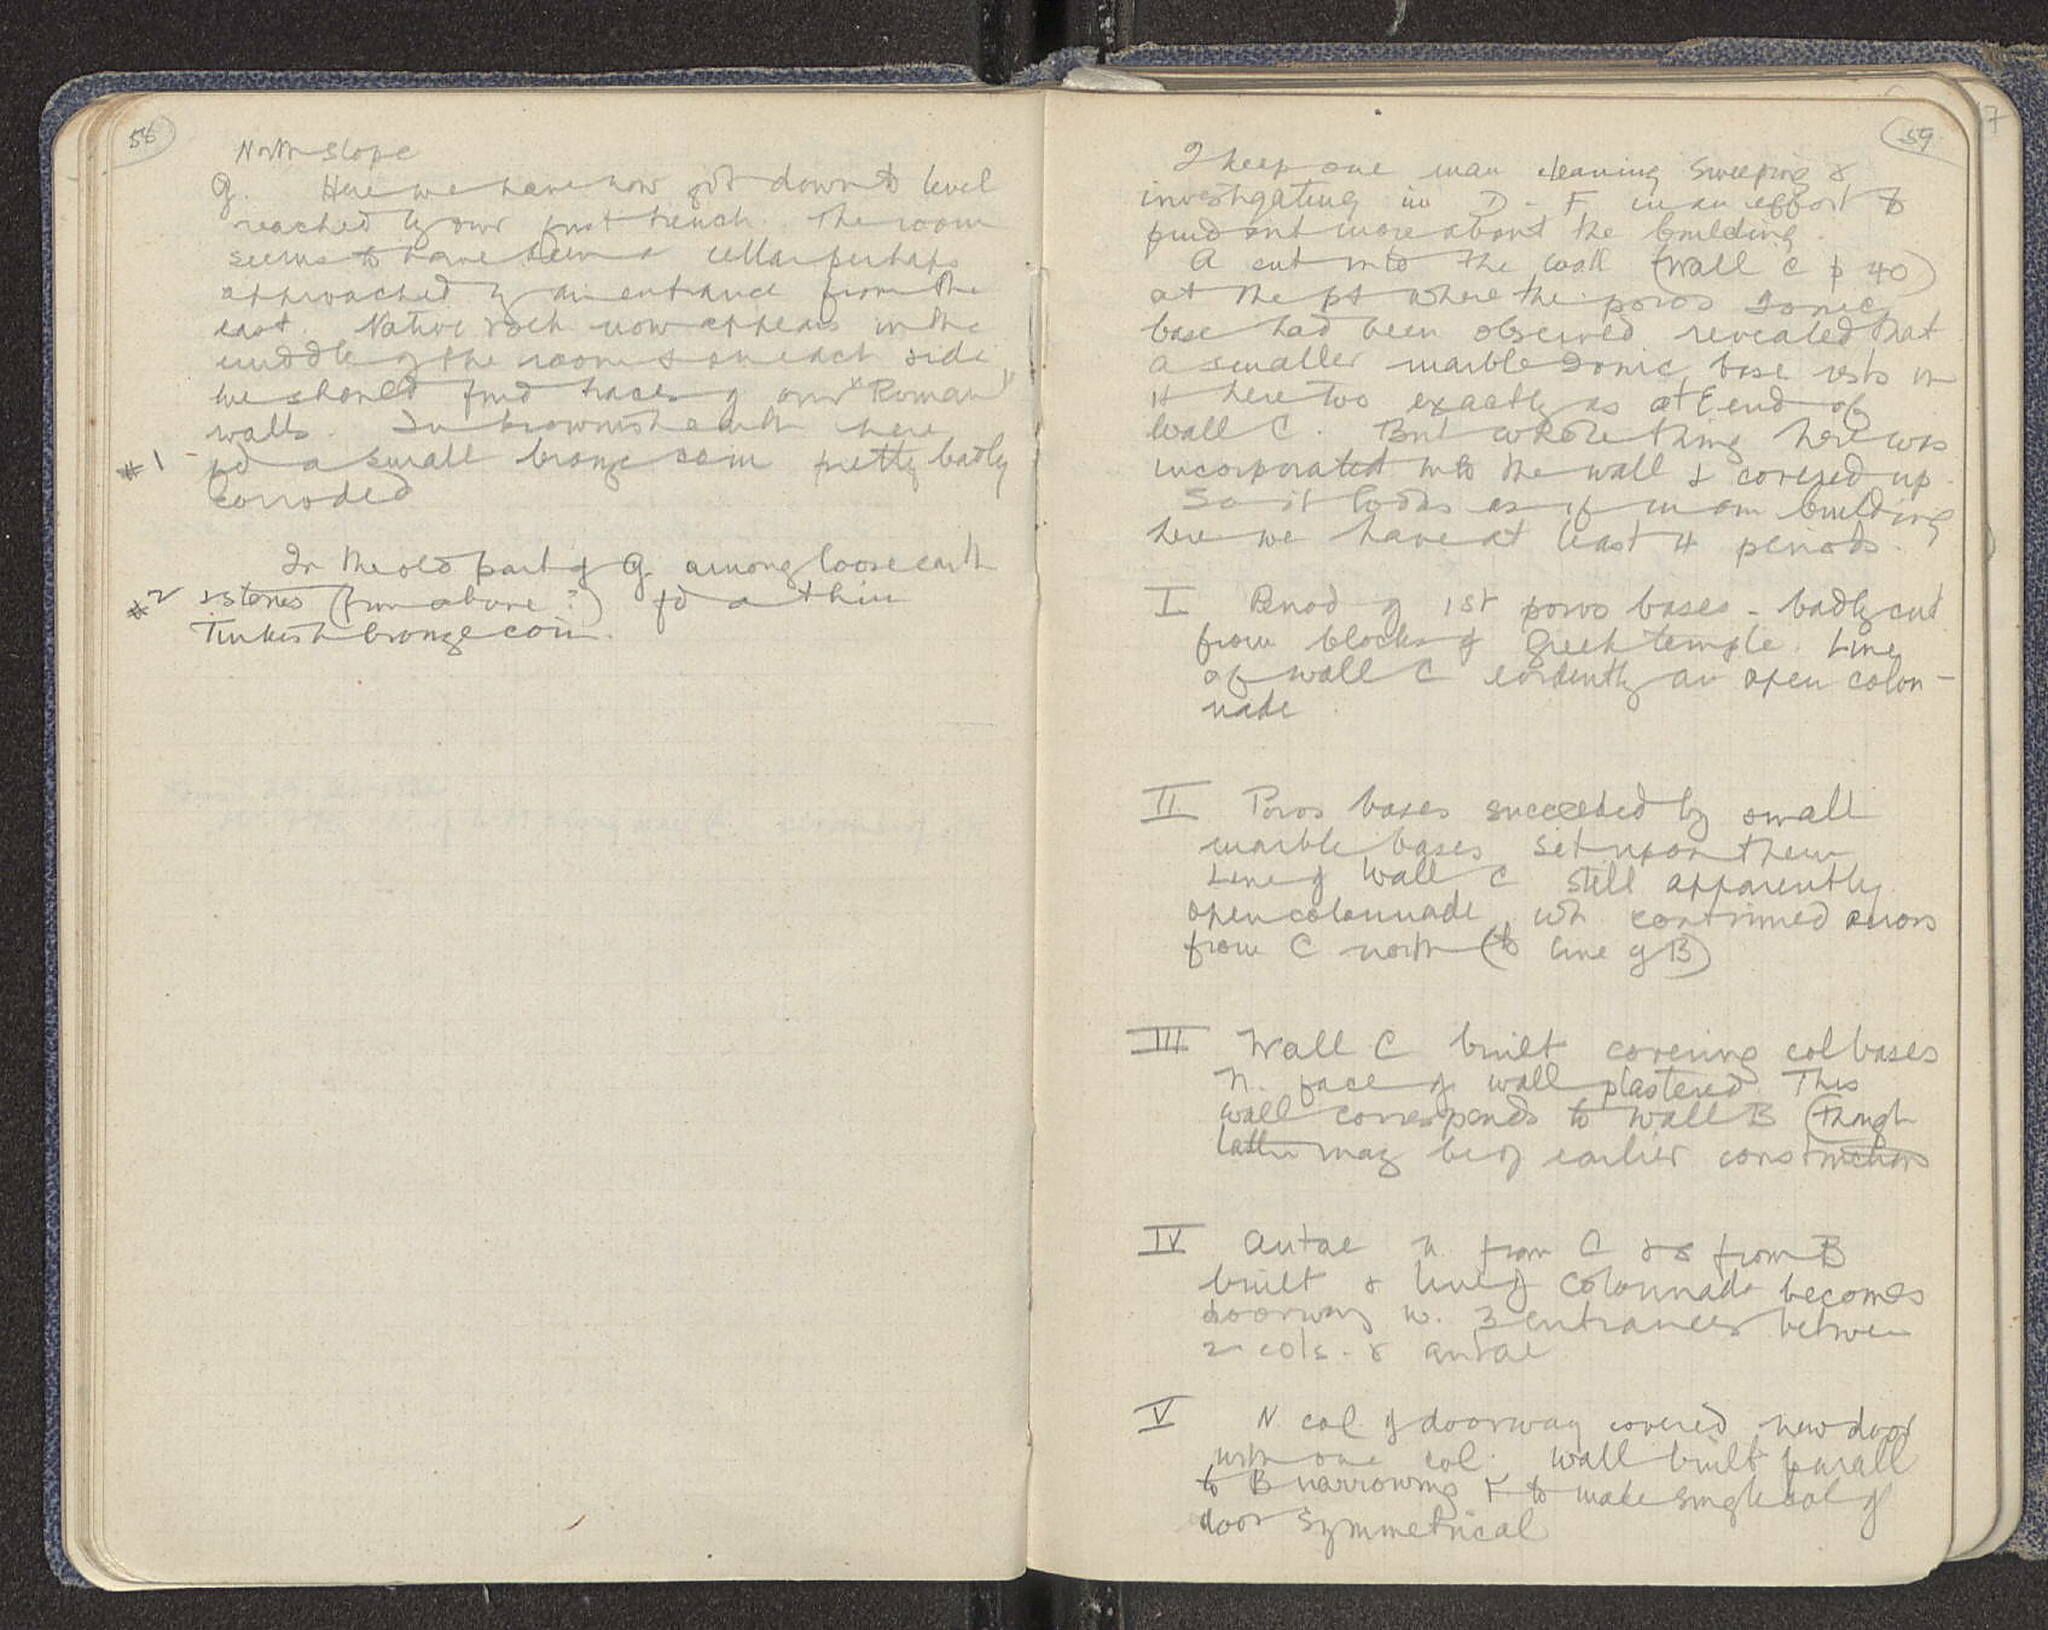 58
North slope
G. Here we have now got down to level
reached by our first trench. The room
seems to have been a cellar perhaps
approached by an entrance from the
east. Native rock now appears in the
middle of the room & on each side
we should find traces of our "Roman"
walls. In brownish earth here
#1 fd a small bronze coin pretty badly
corroded
In the old part of G among loose earth
#2 & stones (from above?) fd a thin
Turkish bronze coin.
59
I keep one man cleaning sweeping &
investigating in D - F in an effort to
find out more about the building.
A cut into the wall (wall C p 40)
at the pt where the poros Ionic
base had been observed revealed that
a smaller marble Ionic base rests on
it here too exactly as at E end of
wall C. But whole thing here was
incorporated into the wall & covered up.
So it looks as if in our building
here we have at least 4 periods.
I Period of 1st poros bases - badly cut
from blocks of Greek temple. Line
of wall C evidently an open colon-
nade
II Poros bases succeeded by small
marble bases set upon them
Line of wall C still apparently
open colonnade, wh. continued across
from C north (to line of B)
III Wall C built covering col bases
N. face of wall plastered. This
wall corresponds to wall B (though
latter may be of earlier construction
IV Antae n. from C & s from B
built & line of colonnade becomes
doorway w. 3 entrances between
2 cols. & antae
V N col. of doorway covered new door
with one col. wall built parall
to B narrowing F to make single col of
door symmetrical